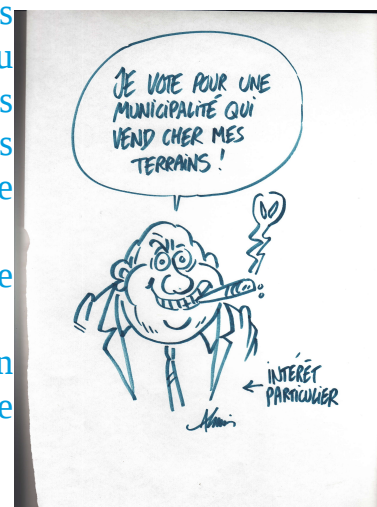 JE VOTE POUR UNE
MUNICIPALITÉ QUI
VEND CHER MES
TERRAINS !
← INTÉRÊT
PARTICULIER